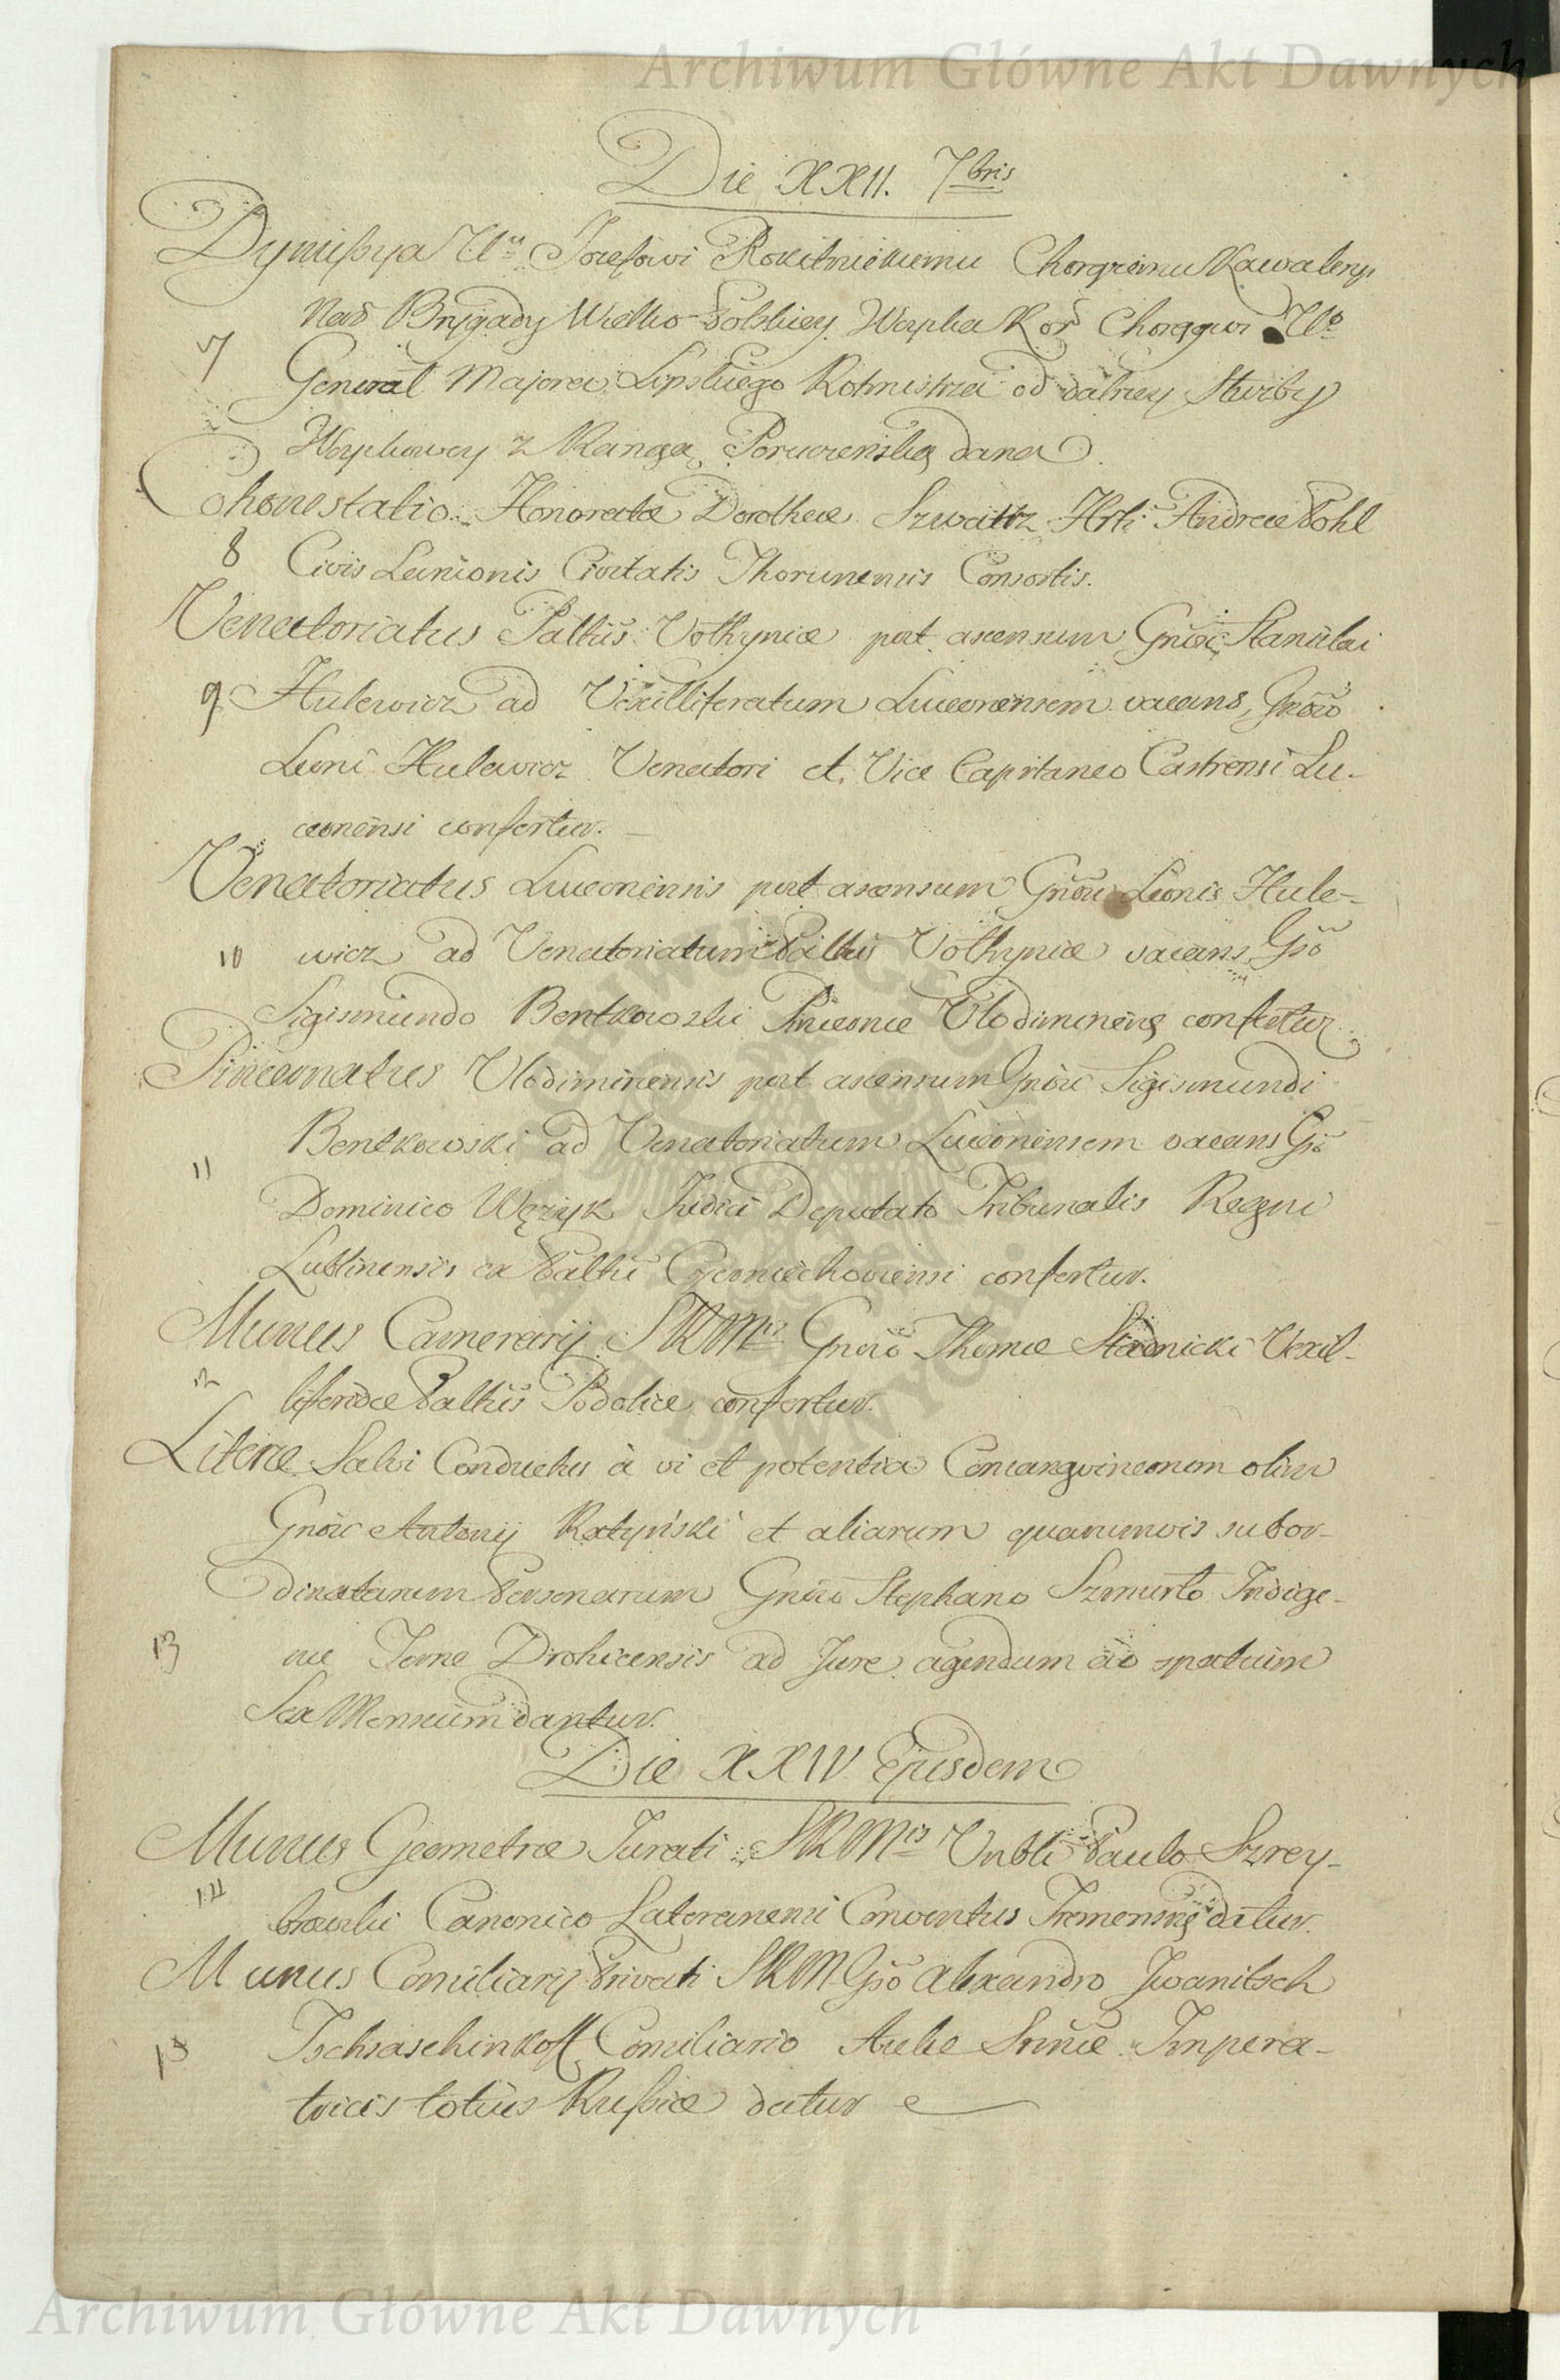 Archiwum Główne Akt Dawnych
Die XXII. 7bris
Dymissya Ur Jozefowi Rokitnickiemu Chorązemu Kawalery
Nar Brygady Wielko Polskiey Woyska Kor Chorągwi Uo
7
General Majora Lipskiego Rotmistrza od dalszey Służby
Woyskowey z Rangą Porucznską dana
Cohonestatio Honorata Dorothea Szwartz Hrti Andreæ Pohl
8 Civis Lanionis Civitatis Thorunensis Consortis.
Venatoriatus Pallus Volhyniæ post ascensum Gnosi Stanislai
9 Hulewicz ad Vexilliferatum Luceoriensem vacans, Gnoso
Leoni Hulewicz Venatori et Vice Capitaneo Castrensi Lu-
ceoriensi confertur.
Venatoriatus Luceoriensis post ascensum Gnosi Leonis Hule-
10 wicz ad Venatoriatum Pallus Volhyniæ vacans Gso
Sigismundo Bentkowski Pincernæ Vlodimirieng confertur.
Pincernatus Vlodimiriensis post ascensum Gnosi Sigismundi
Bentkowski ad Venatoriatum Luceoriensem vacans Gso
11
Dominico Wężyk Judici Deputato Tribunalis Regni
Lublinensis ex Paltu Czerniechoviensi confertur.
Munus Camerarij SRMtis Gnoso Thomæ Stadnicki Vexil-
12 liferidæ Paltus Podoliæ confertur.
Literæ Salvi Conductus à vi et potentia Consangvineorum olim
Gnosi Antonij Ratyński et aliarum quarumvis subor-
dinatarum Personarum Gnoso Stephano Szmurło Indige-
13 næ Terræ Drohicensis ad Jure agendum ad spatium
Sex Mensium dantur.
Die XXIV Ejusdem
Munus Geometræ Jurati SRMtis Vnbli Paulo Szrey-
14 browski Canonico Lateranensi Conventus Tremensis datur.
Munus Consiliarij Privati SRM Gso Alexandro Jwanitsch
15 Tschraschinkoff Consiliario Aulæ Srmæ Impera-
tricis totius Russiæ datur
Archiwum Główne Akt Dawnych